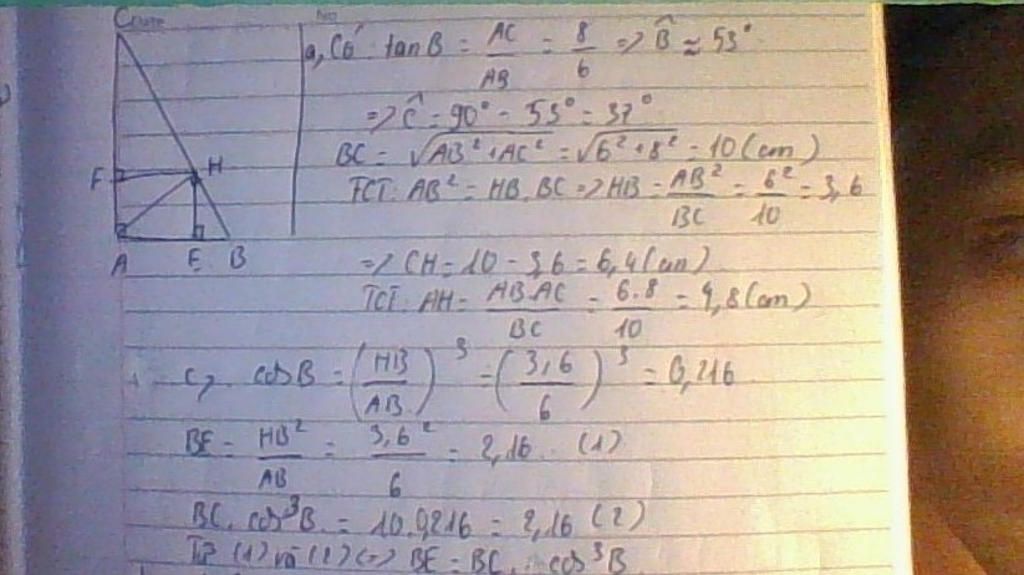 C
No
a, Có tanB = AC/AB = 8/6 => B̂ ≈ 53°
=> Ĉ = 90° - 53° = 37°
BC = √AB²+AC² = √6²+8² = 10(cm)
F H TCT: AB² = HB.BC => HB = AB²/BC = 6²/10 = 3,6
A E B => CH = 10 - 3,6 = 6,4(cm)
TCT: AH = AB.AC/BC = 6.8/10 = 4,8(cm)
c, cosB = (HB/AB)³ = (3,6/6)³ = 0,216
BE = HB²/AB = 3,6²/6 = 2,16 (1)
BC.cos³B = 10.0,216 = 2,16 (2)
Từ (1) và (2) => BE = BC. cos³B